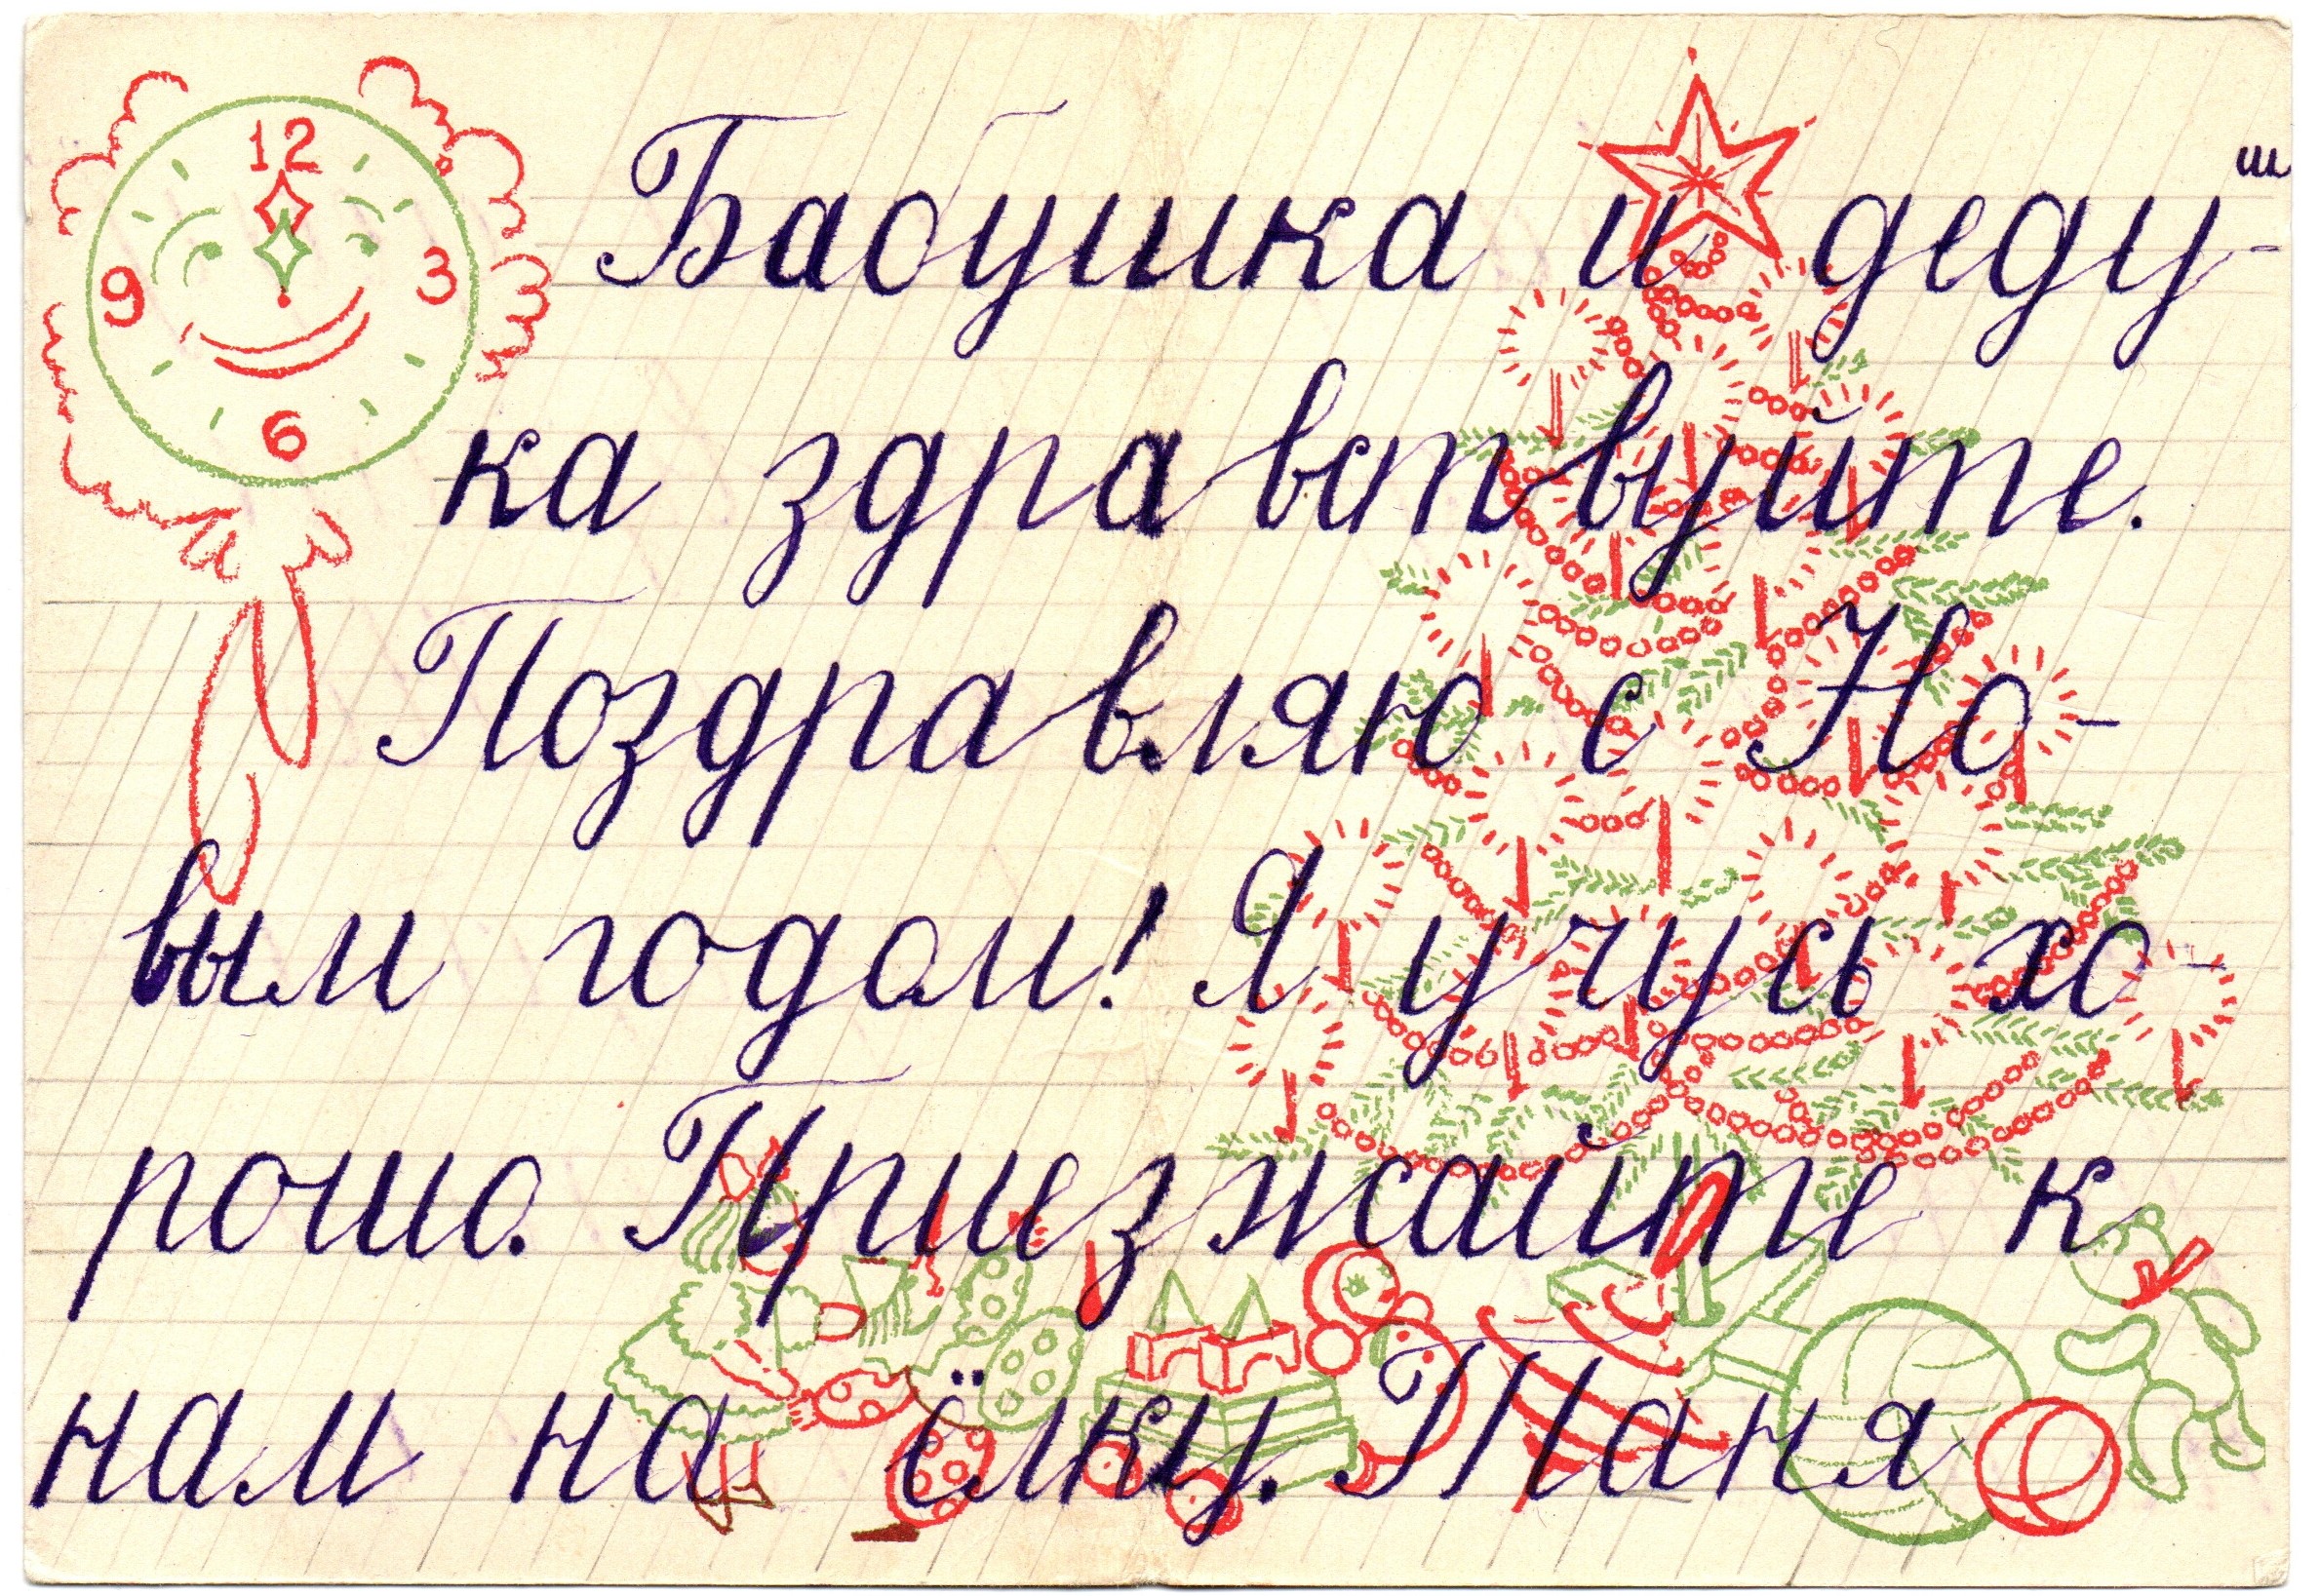 12
9 3
6
Бабушка и дедуш-
ка здравствуйте.
Поздравляю с Но-
вым годом! Я учусь хо-
рошо. Приезжайте к
нам на ёлку. Таня